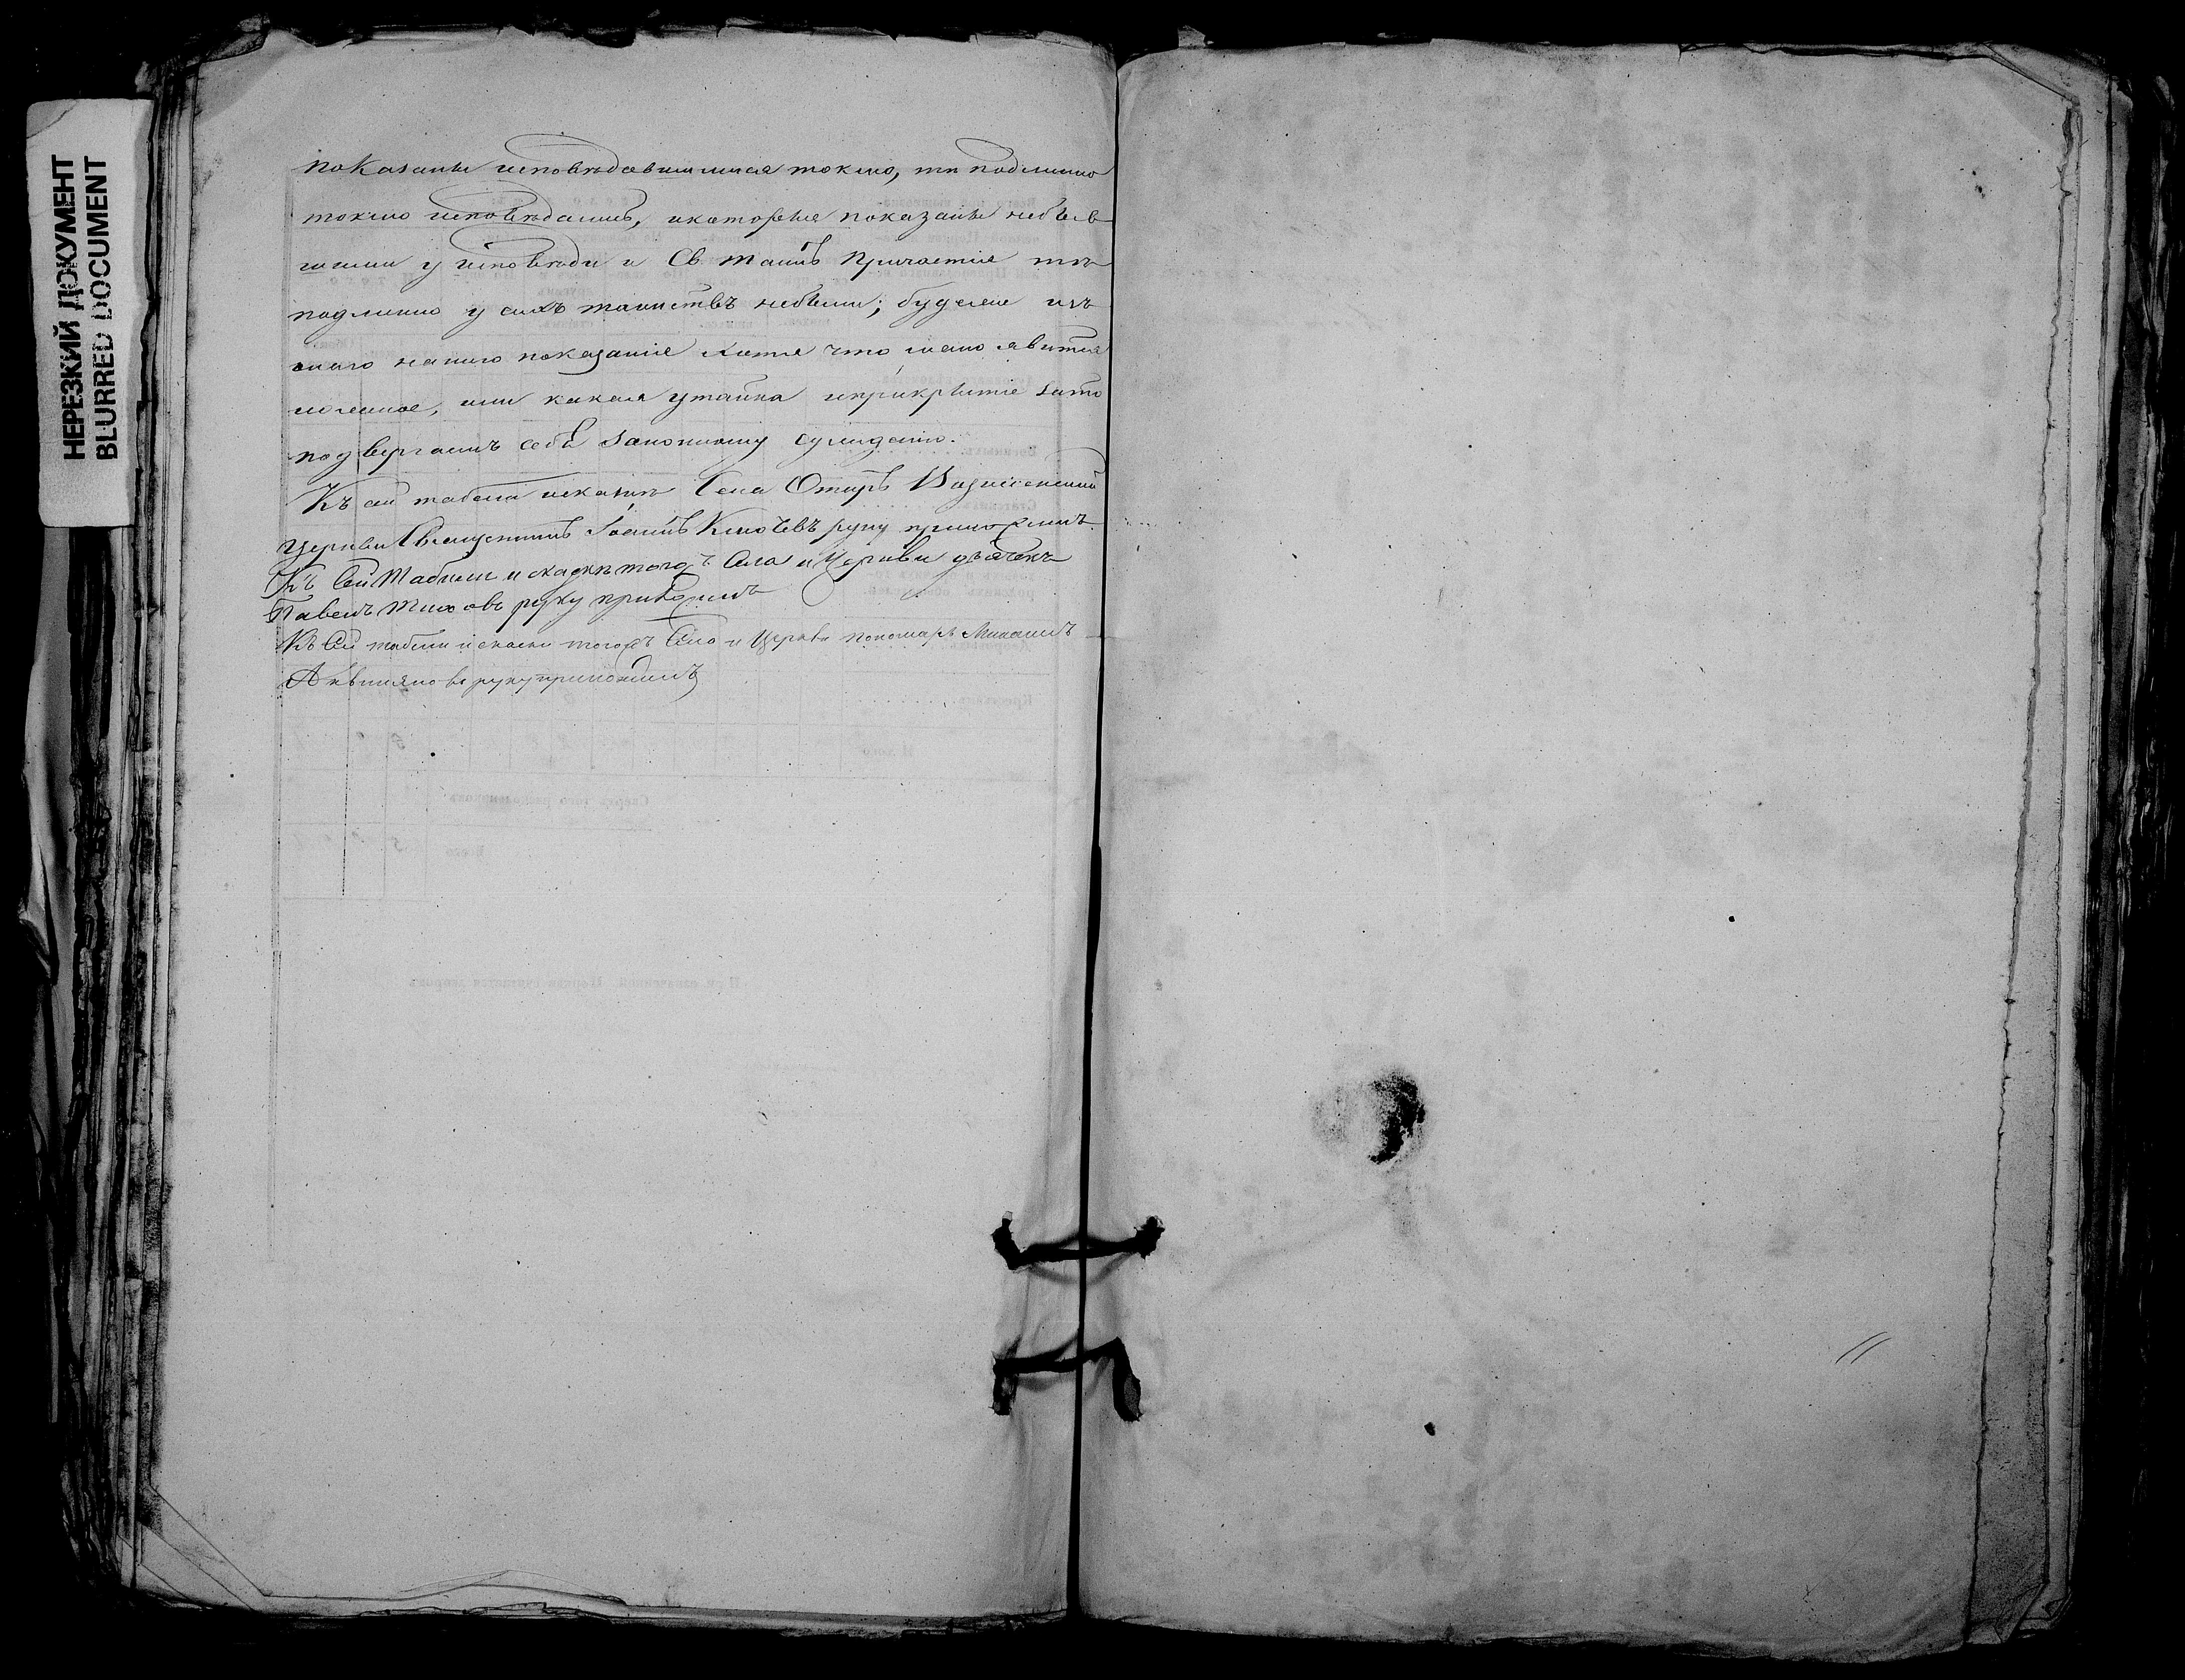 НЕРЕЗКИЙ ДОКУМЕНТ
BLURRED DOCUMENT
показаны исповѣдавшимися токмо, тѣ подлинно
токмо исповѣдались, икоторые показаны небыв
шими у исповѣди и Св. Таинъ Причастия тѣ
подлинно у сихъ таинствъ небыли; будеже изъ
онаго нашего показанія хотя что мало явится
ложное, или какая утайка иприкрытіе зато
подвергаемъ себѣ законному сужденію.
Къ сей табели исказкѣ Села Вознесенской
Церкви Священникъ Іоаннъ руку приложилъ
Къ Сей Табели и сказкѣ тогожъ Села и Церкви дьячекъ
Павелъ Тиховъ руку приложилъ
Къ Сей табели и сказки тогожъ Села и Церкви пономарь Михаилъ
Аквиляновъ руку приложилъ